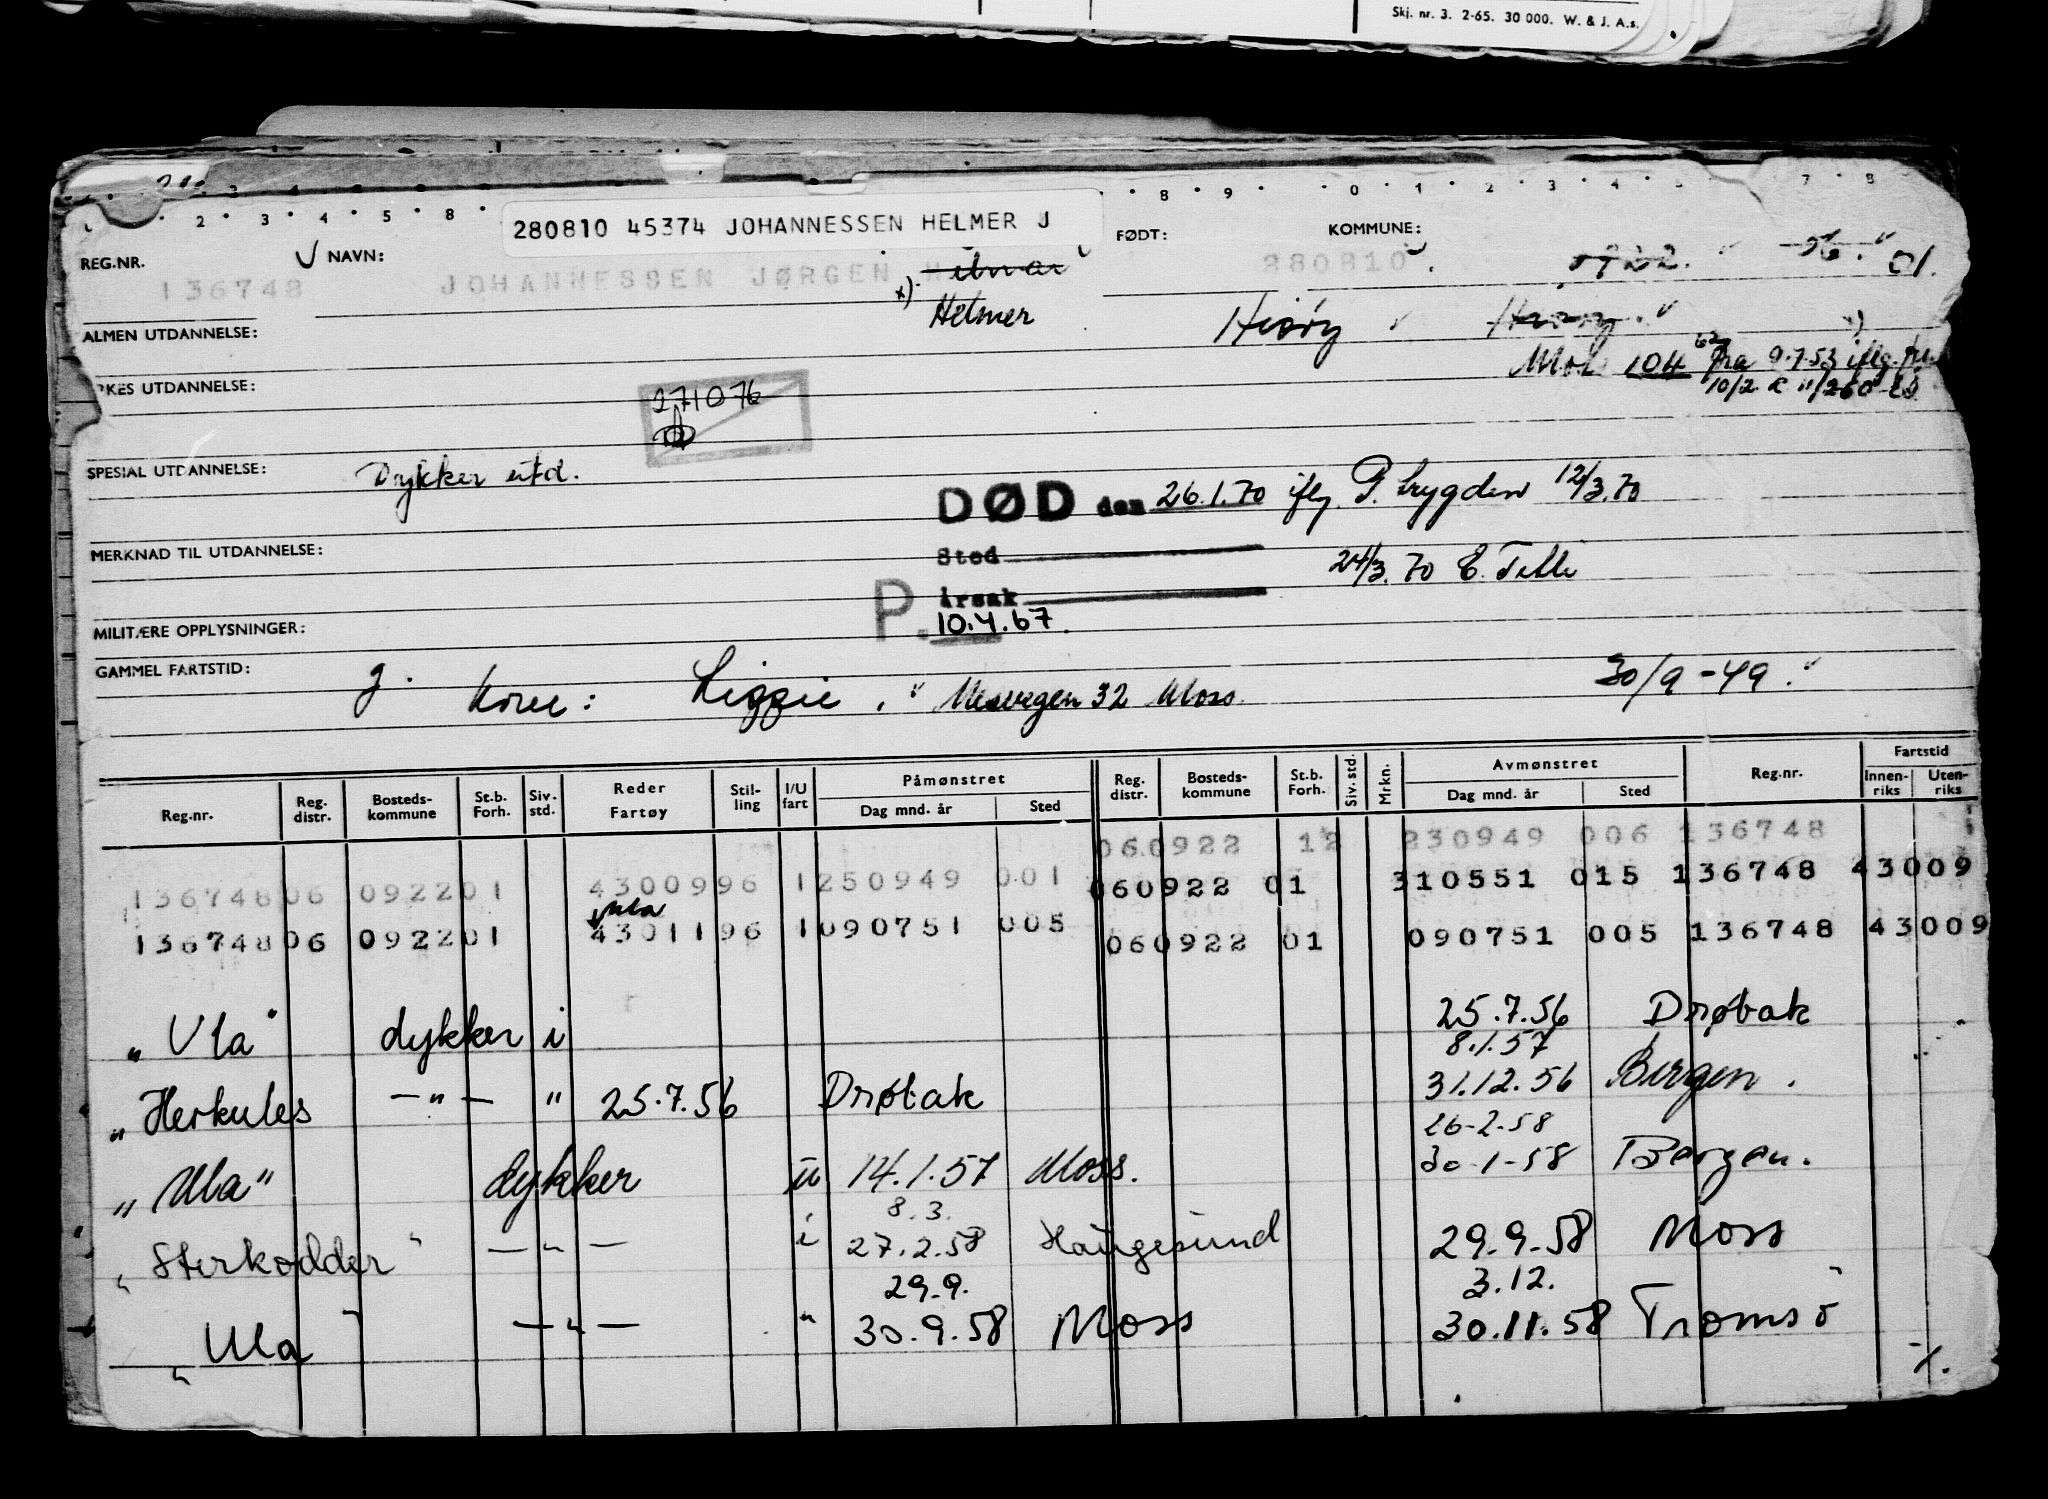 Skj. nr. 3. 2-65. 30 000. W. & J. A.s.
280810 45374 JOHANNESSEN HELMER J
REG.NR. NAVN: FØDT: KOMMUNE:
136748 JOHANNESSEN JØRGEN 280810 01.
x) Helmer Hisøy
ALMEN UTDANNELSE:
104 fra 9.7.53 iflg.
10/2
KES UTDANNELSE:
271076
SPESIAL UTDANNELSE: Dykker utd.
DØD den 26.1.70 iflg. P. trygden 12/3.70
MERKNAD TIL UTDANNELSE:
Sted 24/3.70
Årsak
P. 10.4.67.
MILITÆRE OPPLYSNINGER:
GAMMEL FARTSTID: g. 30/9-49.
kone: Lizzie, 32 Moss.
Reg.nr. Reg. distr. Bosteds- kommune St.b. Forh. Siv. std. Reder Fartøy Stil- ling I/U fart Påmønstret Dag mnd. år Sted Reg. distr. Bosteds- kommune St.b. Forh. Siv. std. Mrkn. Avmønstret Dag mnd. år Sted Reg.nr. Fartstid Innen- riks Uten- riks
060922 12 230949 006 136748
136748 06 0922 01 43009 96 1 250949 001 060922 01 310551 015 136748 43009
Ula
136748 06 0922 01 43011 96 1 090751 005 060922 01 090751 005 136748 43009
"Ula" dykker i 25.7.56 Drøbak
8.1.57
"Herkules — " — " 25.7.56 Drøbak 31.12.56 Bergen.
26-2-58
"Ula" dykker u 14.1.57 Moss. 30-1-58 Bergen.
8.3.
"Sterkodder" — " — i 27.2.58 Haugesund 29.9.58 Moss
29.9. 3.12.
"Ula" — " — " 30.9.58 Moss 30.11.58 Tromsö